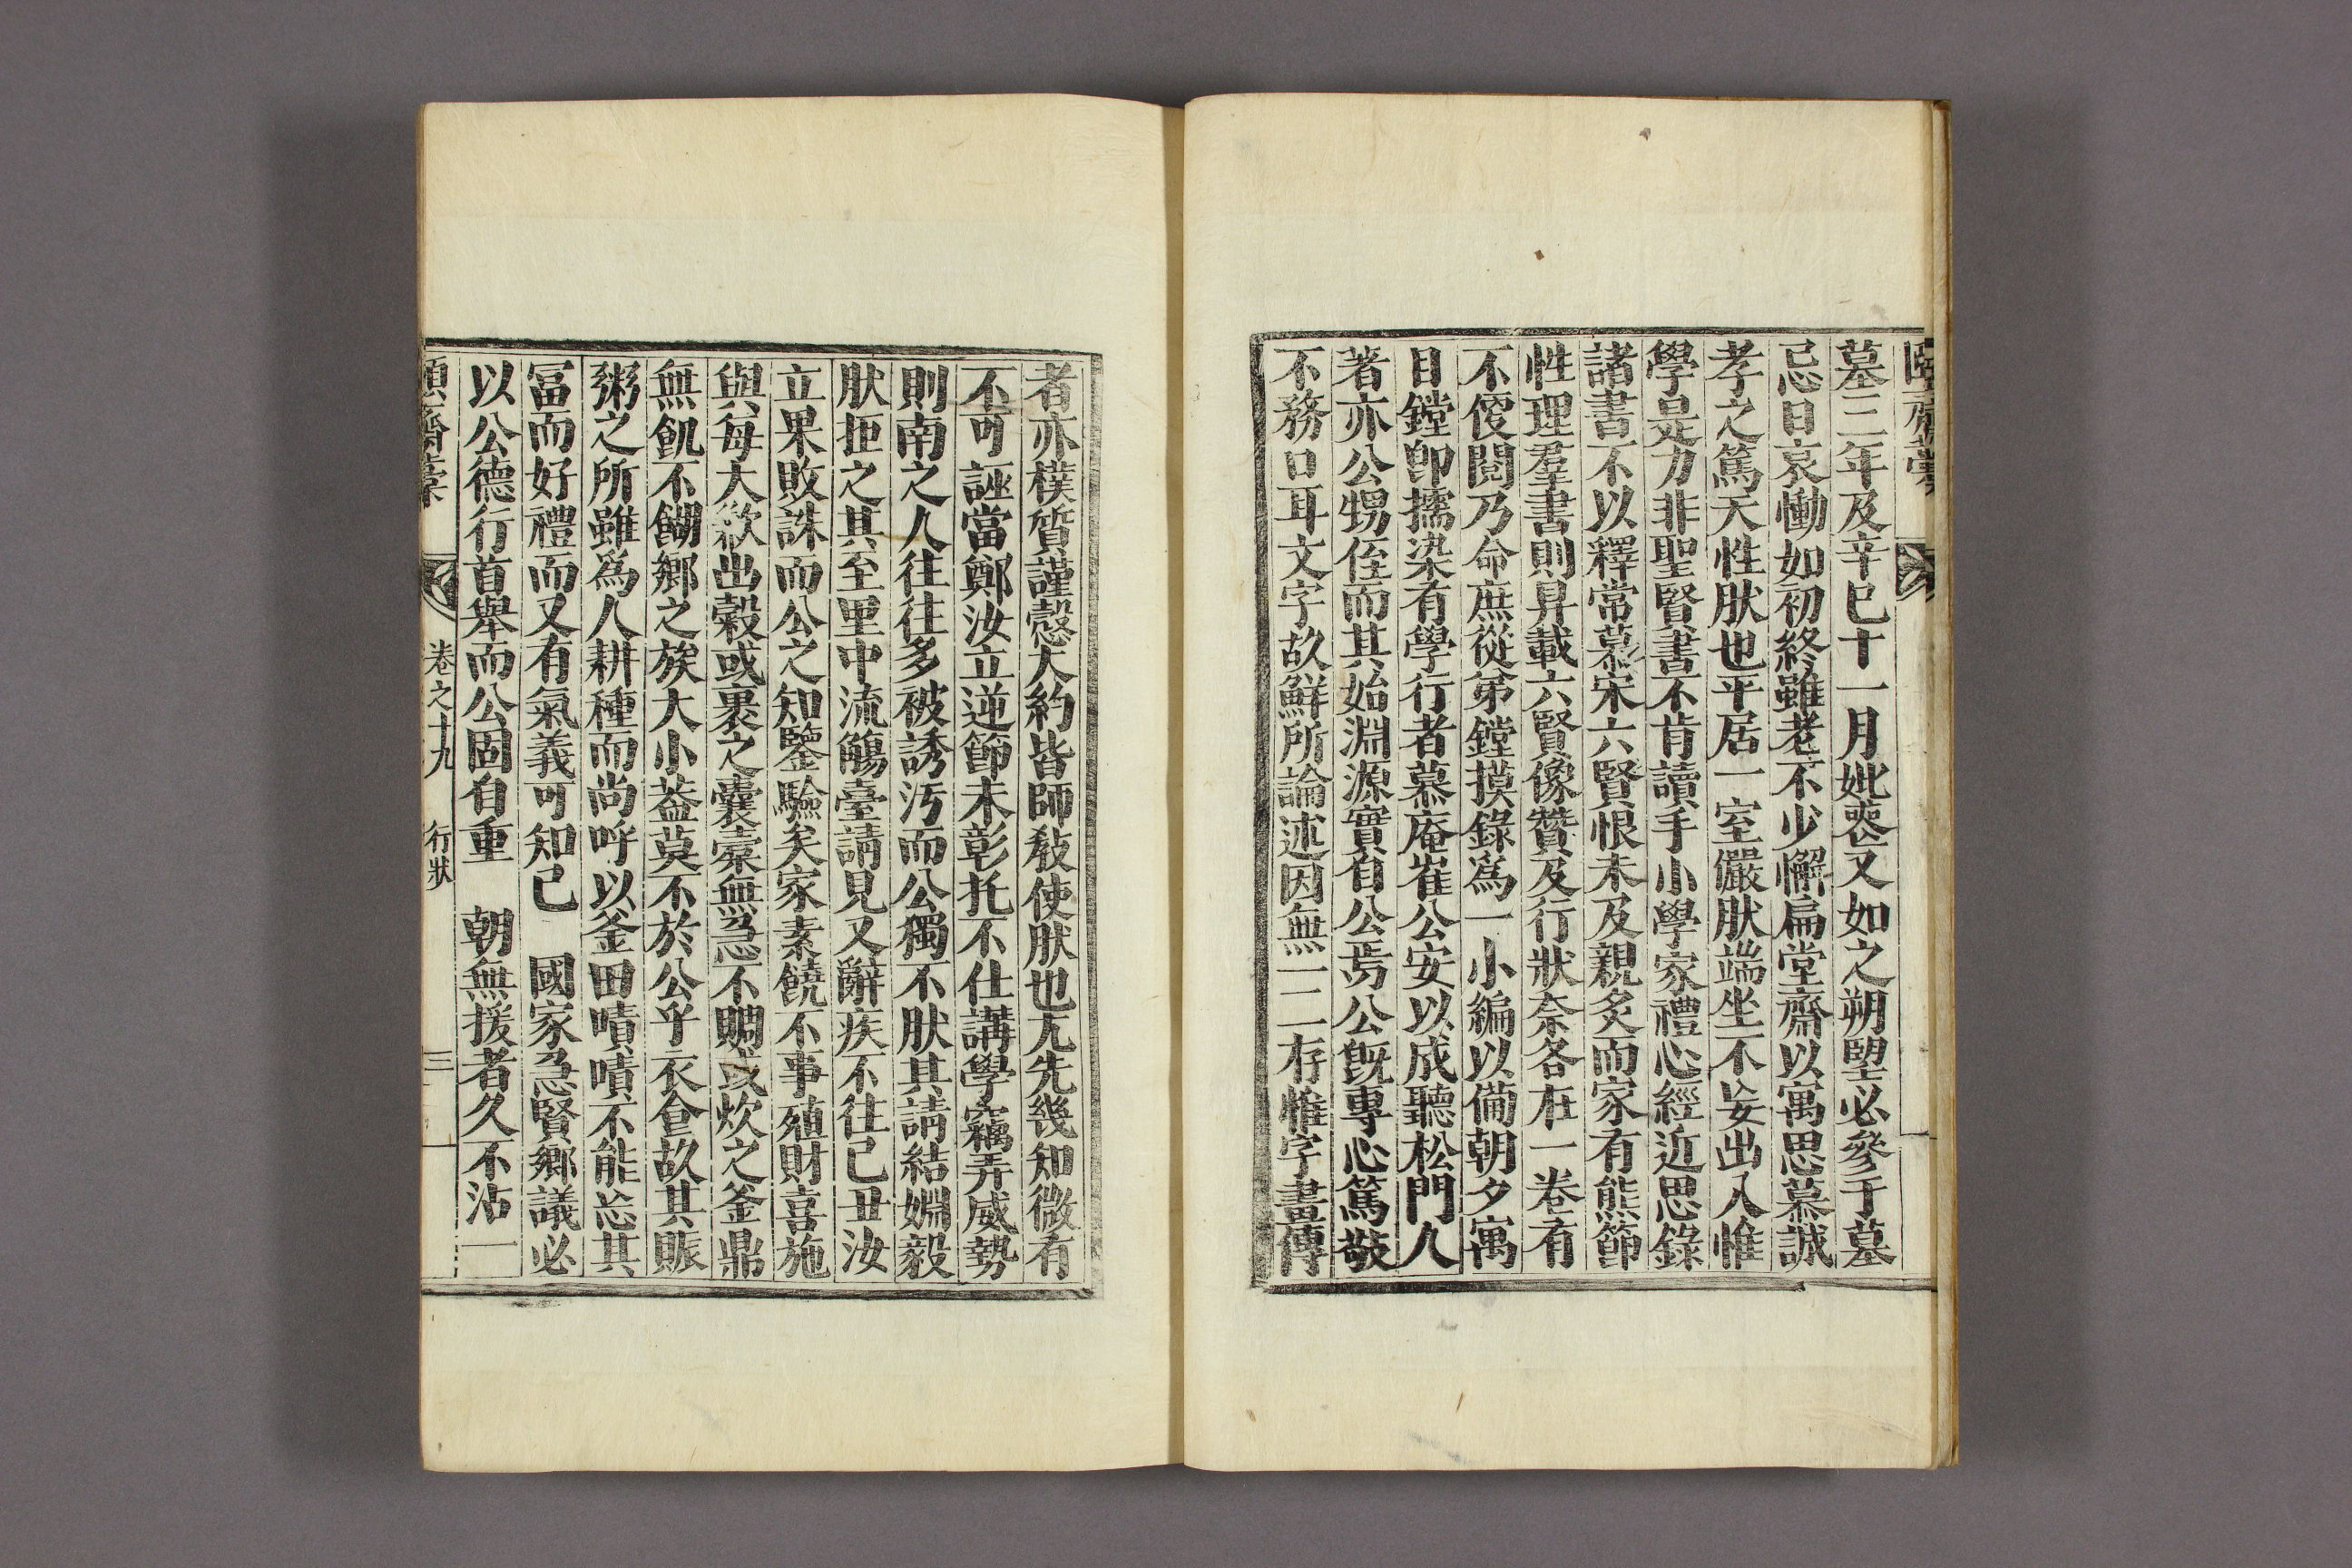 墓三年及辛巳十一月妣喪又如之朔望必參于墓
忌日哀慟如初終雖老不少懈扁堂齋以寓思慕誠
孝之篤天性肰也平居一室儼肰端坐不妄出入惟
學是力非聖賢書不肯讀手小學家禮心經近思錄
諸書不以釋常慕宋六賢恨未及親炙而家有熊節
性理羣書則昇載六賢像贊及行狀奈各在一卷有
不侫閱乃命庶從弟鏜摸錄爲一小編以備朝夕寓
目鏜卽擩染有學行者慕庵崔公安以成聽松門人
著亦公甥侄而其始淵源實自公焉公旣專心篤敬
不務口耳文字故鮮所論述因無一二存惟字畫傳
者亦樸質謹慤大約皆師敎使肰也尤先幾知微有
不可誣當鄭汝立逆節未彰托不仕講學竊弄威勢
則南之人往往多被誘汚而公獨不肰其請結婣毅
肰拒之其至里中流觴臺請見又辭疾不往己丑汝
立果敗誅而公之知鑒驗矣家素饒不事殖財喜施
與每大歉出穀或裹之囊橐無忌不賙或炊之釜鼎
無飢不餬鄕之族大小益莫不於公乎衣食故其賑
粥之所雖爲人耕種而尙呼以釜田嘖嘖不能忘其
冨而好禮而又有氣義可知已　國家急賢鄕議必
以公德行首舉而公固自重　朝無援者久不沾一
頤齋藁　卷之十九　行狀　三